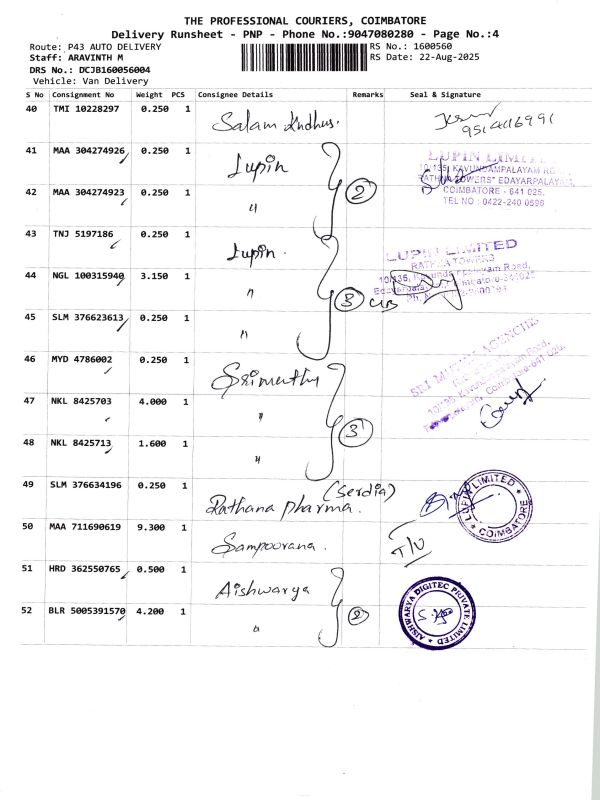 THE PROFESSIONAL COURIERS, COIMBATORE
Delivery Runsheet - PNP - Phone No.:9047080280 - Page No.:4
Route: P43 AUTO DELIVERY
RS No.: 1600560
Staff: ARAVINTH M
RS Date: 22-Aug-2025
DRS No.: DCJB160056004
Vehicle: Van Delivery
S No Consignment No Weight PCS Consignee Details Remarks Seal & Signature
40 TMI 10228297 0.250 1 Salam
41 MAA 304274926 0.250 1 Lupin
LUPIN LIMITED
10/135, KAVUNDAMPALAYAM
TOWERS" EDAYARPALAYAM,
COIMBATORE - 641 025.
TEL NO : 0422-240 0596
42 MAA 304274923 0.250 1 " 2
43 TNJ 5197186 0.250 1 Lupin.
LUPIN LIMITED
RATHNA TOWERS
10/135, Road,
44 NGL 100315940 3.150 1 " 3
45 SLM 376623613 0.250 1 "
46 MYD 4786002 0.250 1 Srimathy
SRI AGENCIES
10/135, Road,
47 NKL 8425703 4.000 1 "
48 NKL 8425713 1.600 1 " 3
49 SLM 376634196 0.250 1 Rathana pharma. (Serdia)
LUPIN LIMITED
COIMBATORE
50 MAA 711690619 9.300 1 Sampoorana.
51 HRD 362550765 0.500 1 Aishwarya
52 BLR 5005391570 4.200 1 " 2
AISHWARYA DIGITEC PRIVATE LIMITED